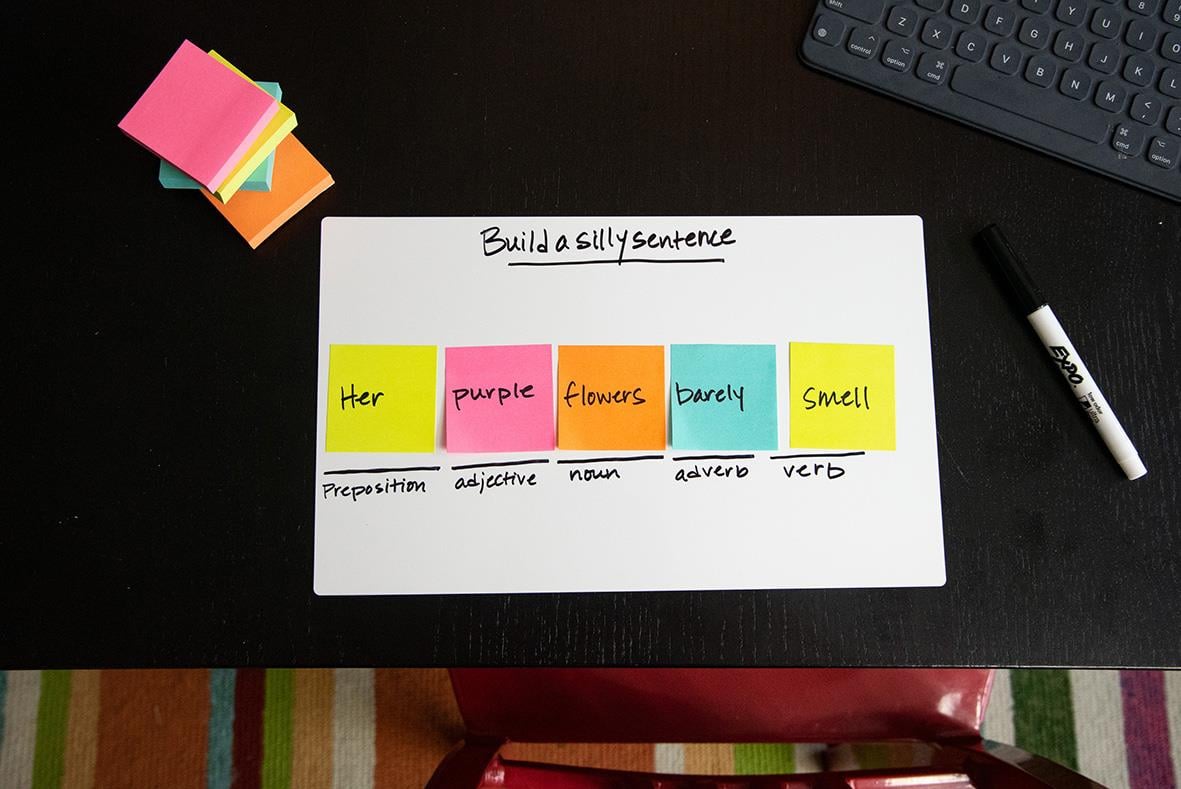 Build a silly sentence
Her purple flowers barely smell
Preposition adjective noun adverb verb
shift Z X C V B N M <
D F G H J K L
Y U I O
8 9
control option cmd
cmd option
EXPO
low odor